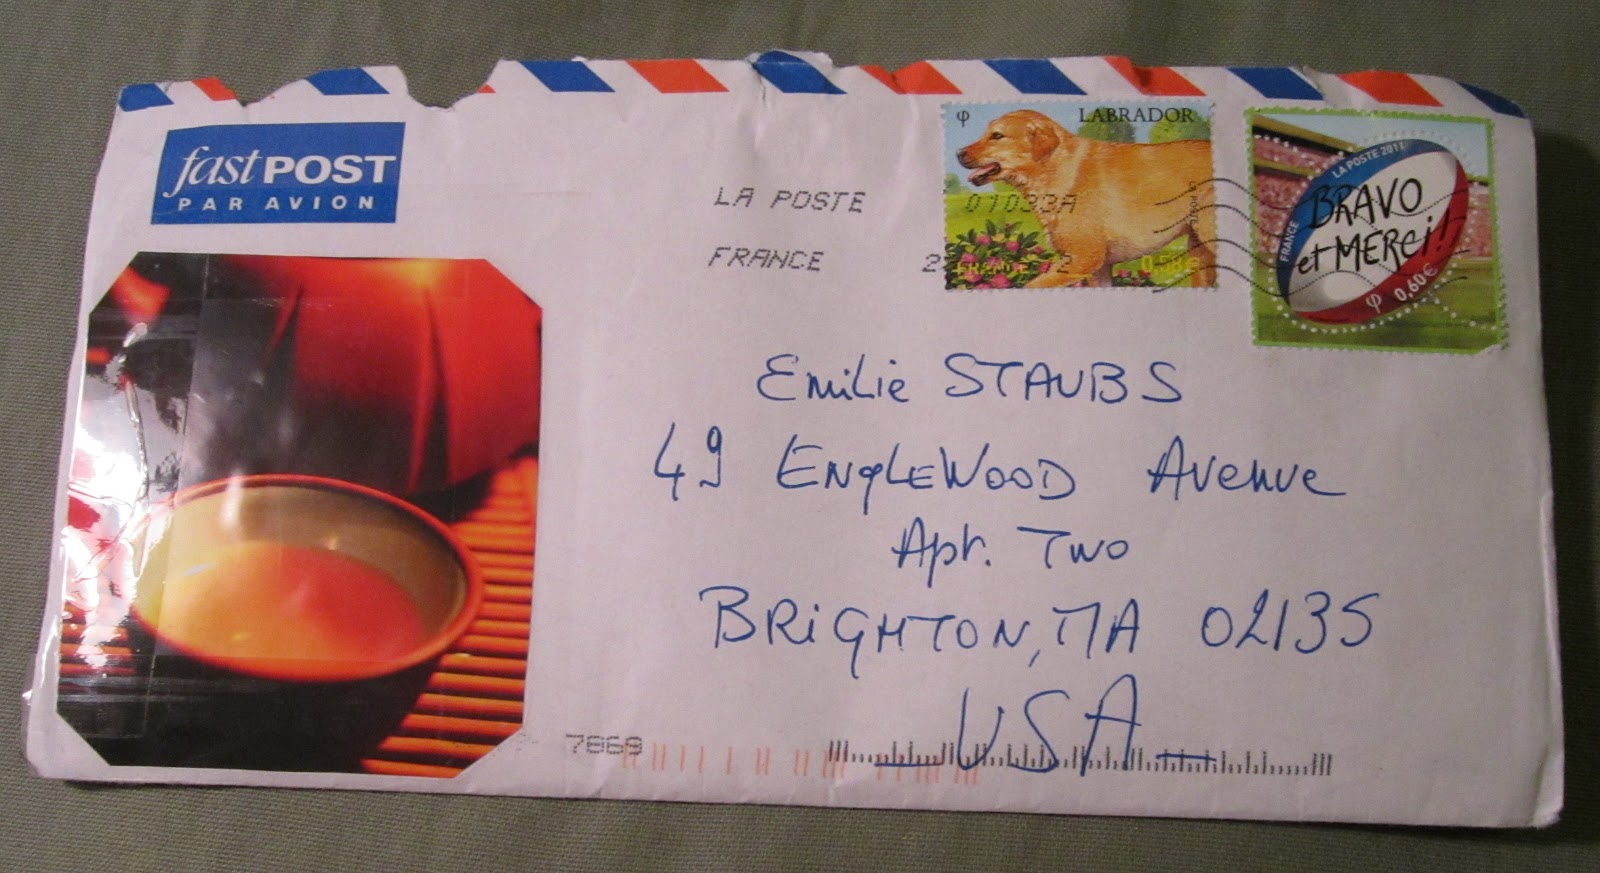 fast POST
PAR AVION
LA POSTE
FRANCE
01033A
φ
LABRADOR
FRANCE
LA POSTE 2011
FRANCE
BRAVO
et MERCi!
φ 0,60€
Emilie STAUBS
49 ENGLEWOOD Avenue
Apt. Two
BRiGHTON, MA 02135
USA